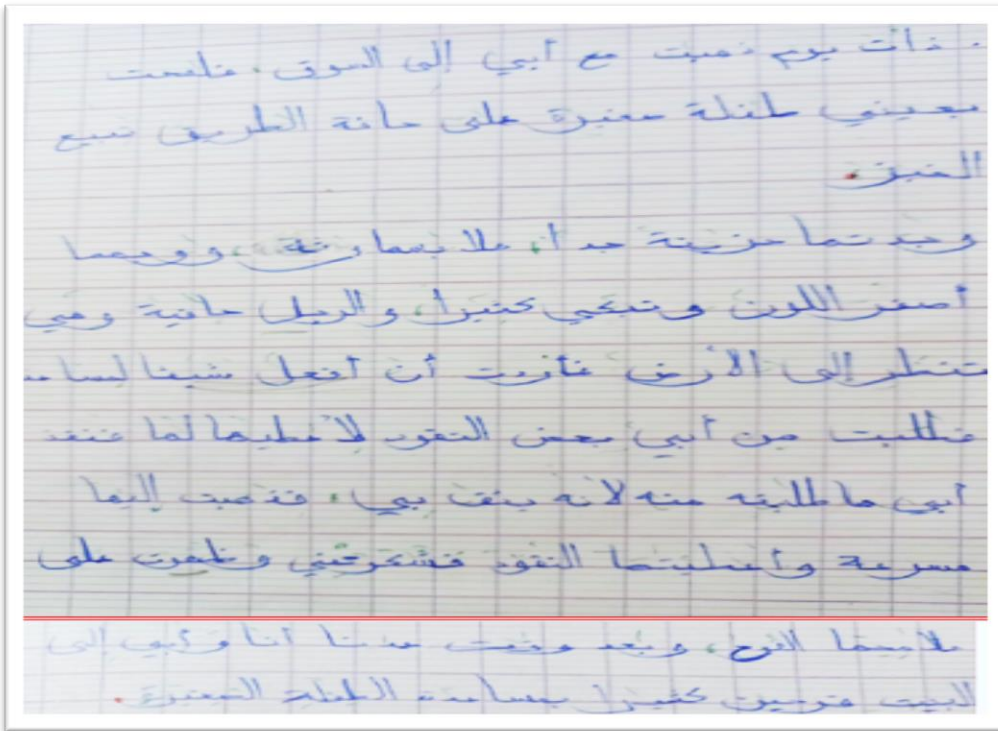 ذات يوم ذهبت مع أبي إلى السوق، فلمحت
بعيني طفلة صغيرة على حافة الطريق تبيع
الخبز.
وجدتها حزينة جدا، ملابسها رثة، ووجهها
أصفر اللون وتبكي كثيرا، والرجل حافية وهي
تنظر إلى الأرض فأردت أن أفعل شيئا
فطلبت من أبي بعض النقود لأعطيها لها فنفد
أبي ما طلبته منه لأنه يثق بي، فذهبت إليها
مسرعة وأعطيتها النقود فشكرتني وظهرت على
ملامحها الفرح، وبعد وقت عدنا أنا وأبي إلى
البيت فرحين كثيرا بمساعدة الطفلة الصغيرة.